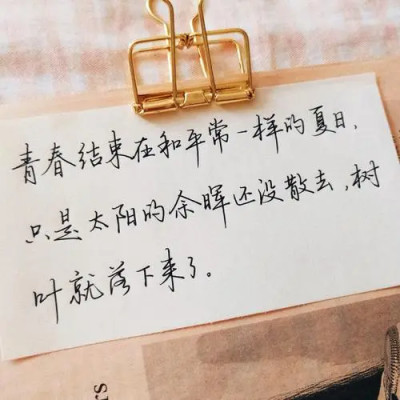 青春结束在和平常一样的夏日，
只是太阳的余晖还没散去，树
叶就落下来了。